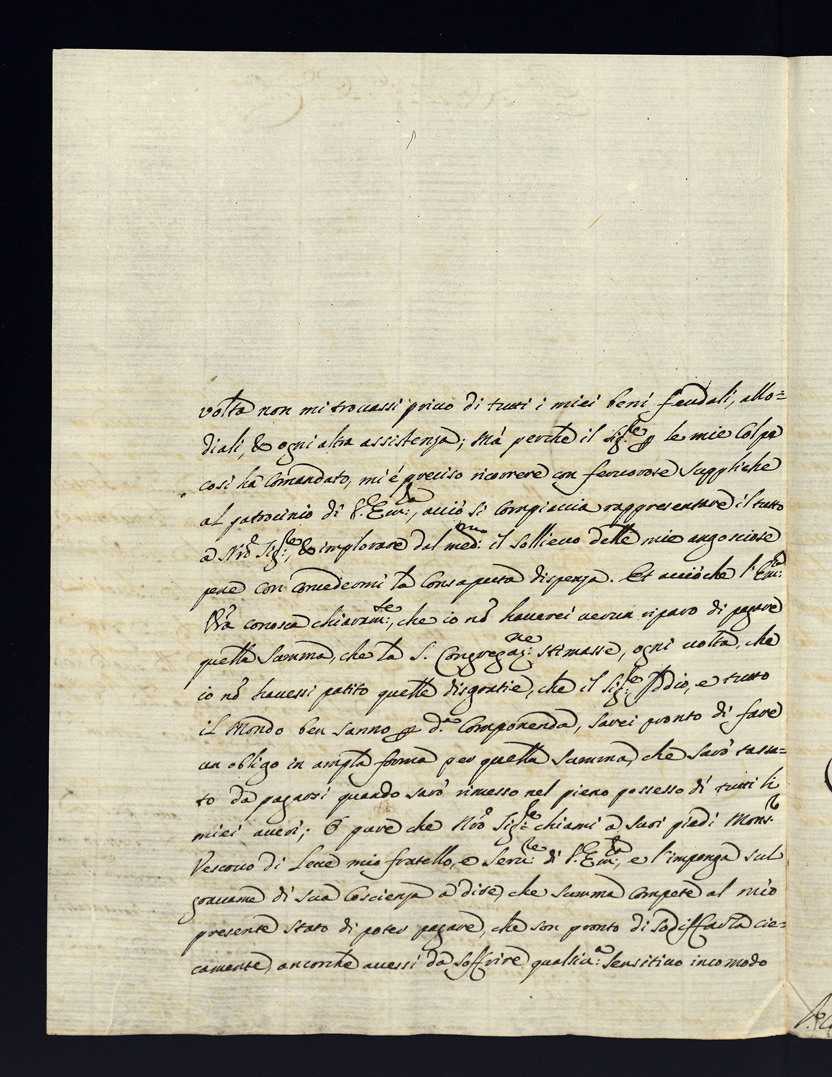 volta non mi trovassi privo di tutti i miei beni feudali, allo=
diali, & ogni altra assistenza; mà perche il Sig.re p le mie colpe
così hà comandato, mi é preciso ricorrere con fervorose suppliche
al patrocinio di V. Em.za, acciò si compiaccia rappresentare il tutto
a Nro Sig.re, & implorare dal med.mo il sollievo delle mie angosciose
pene con concedermi la consaputa dispenza. Et acciòche l'Em.za
Vra conosca chiaram.te, che io nò haverei verun riparo di pagare
quella summa, che la S. Congregaz.ne stimasse, ogni volta, che
io nò havessi patito quelle disgratie, che il Sig.re Iddio, e tutto
il Mondo ben sanno p d.a Componenda, sarei pronto di fare
un obligo in ampla forma per quella summa, che sarò tassa=
to da pagarsi quando sarò rimesso nel pieno possesso di tutti li
miei averi; ò pure che Nro Sig.re chiami a suoi piedi Mons.r
Vescovo di Lecce mio fratello, e Serv.re di V. Em.za, e l'imponga sul
gravame di sua Coscienza a dire, che summa compete al mio
presente stato di poter pagare, che son pronto di sodisfarla cie=
camente, ancorche avessi da soffrire qualsiv.a sensitivo incomodo